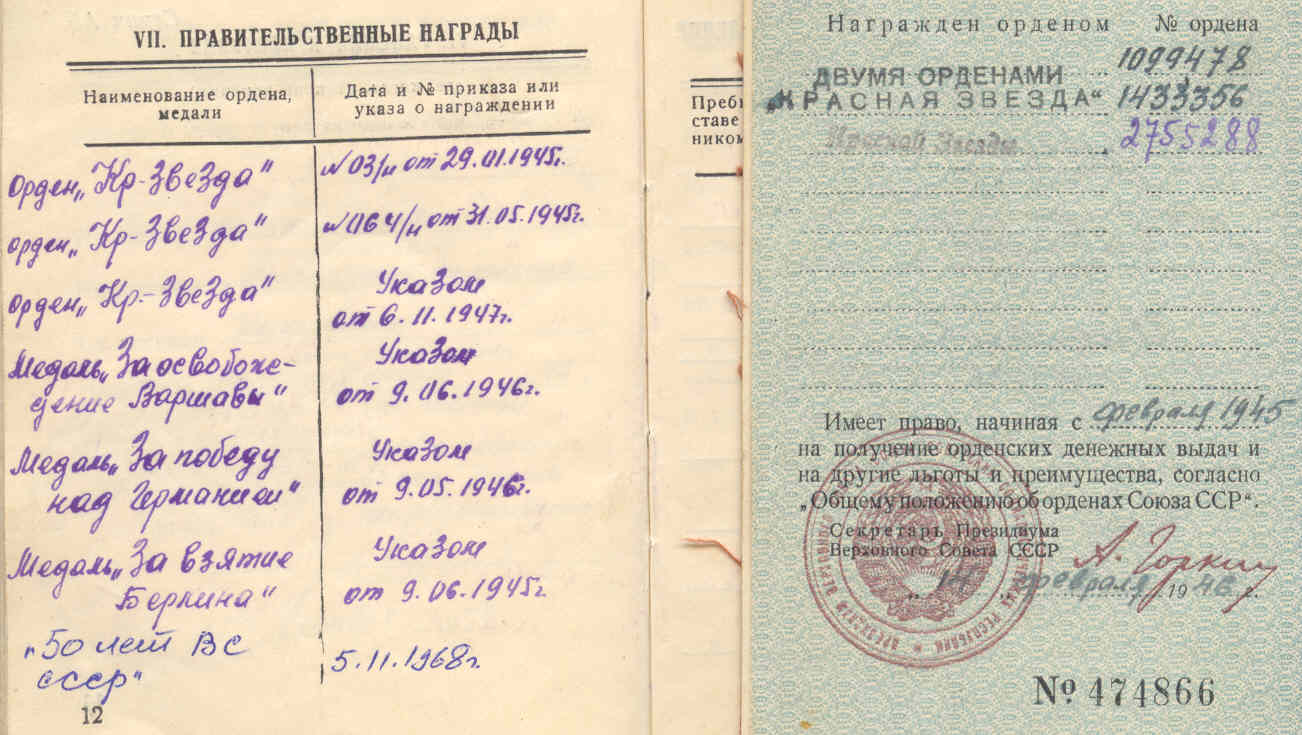 VII. ПРАВИТЕЛЬСТВЕННЫЕ НАГРАДЫ
Наименование ордена, медали
Дата и № приказа или указа о награждении
Орден „Кр-Звезда"
№ 03/н от 29.01.1945г.
орден „Кр-Звезда"
№ 064/н от 31.05.1945г.
орден „Кр.-Звезда"
Указом
от 6.11.1947г.
Медаль „За освобожде-
дение Варшавы"
Указом
от 9.06.1946г.
Медаль „За победу
над Германией"
Указом
от 9.05.1946г.
Медаль „За взятие
Берлина"
Указом
от 9.06.1945г.
„50 лет ВС
СССР"
5.11.1968г.
12
ставе
ником
Награжден орденом № ордена
ДВУМЯ ОРДЕНАМИ 1099478
„КРАСНАЯ ЗВЕЗДА“ 1433356
Красной Звезды 2755288
Имеет право, начиная с февраля 1945
на получение орденских денежных выдач и
на другие льготы и преимущества, согласно
„Общему положению об орденах Союза ССР“.
Секретарь Президиума
Верховного Совета СССР
А. Горкин
февраля 1946 г.
№ 474866